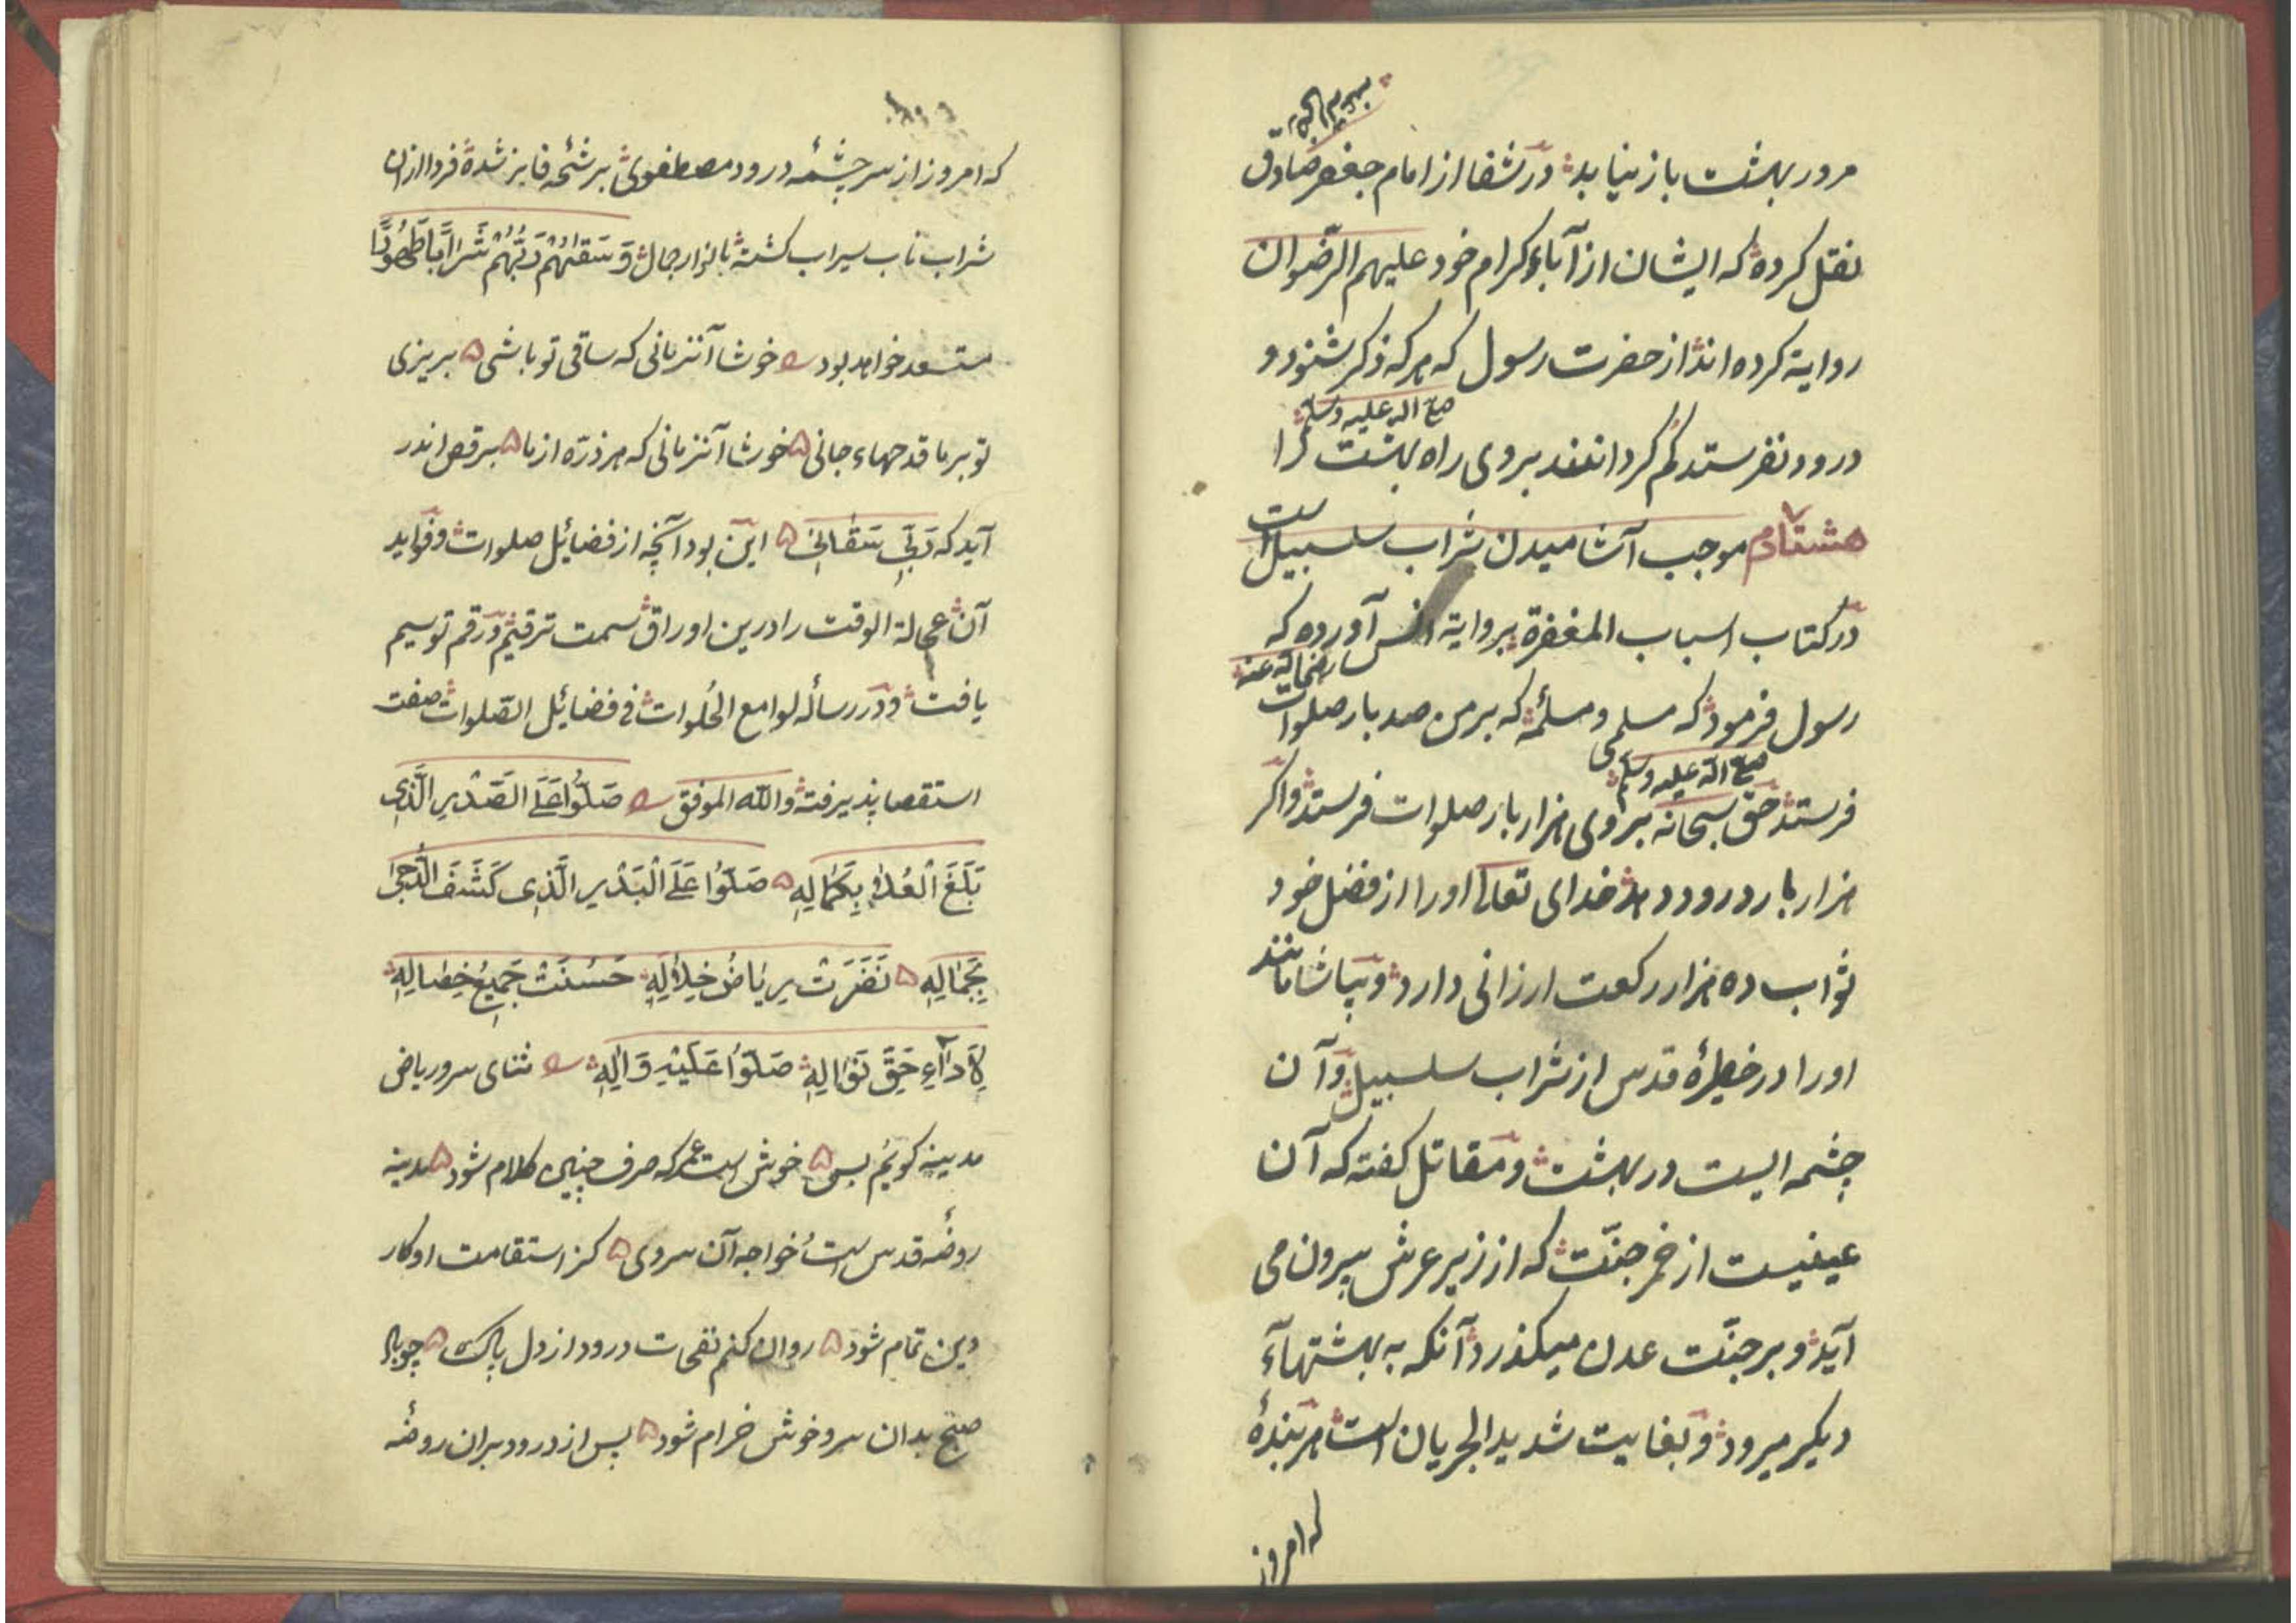 مرور بهشت باز نیابد در شفا از امام جعفر صادق
نقل کرده که ایشان از آباء کرام خود علیهم الرّضوان
روایة کرده اند از حضرت رسول که هر که ذکر شنود و
صلی الله علیه وسلم
درود نفرستد گم گردانند بروی راه بهشت را
هشتادم موجب آشامیدن شراب سلسبیل است
در کتاب اسباب المغفرة بروایة انس آورده که
رضی الله عنه
رسول فرمود که مسلمی و مسلمهٔ که بر من صد بار صلوات
صلی الله علیه وسلم
فرستد حق سبحانه بروی هزار بار صلوات فرستد و اگر
هزار بار درود دهد خدای تعالی اورا از فضل خود
ثواب ده هزار رکعت ارزانی دارد و بیاشامانند
اورا در خطیرهٔ قدس از شراب سلسبیل و آن
چشمه ایست در بهشت و مقاتل گفته که آن
عینیست از خمر جنّت که از زیر عرش بیرون می
آید و بر جنّت عدن میگذرد آنکه به بهشتهآء
دیگر میرود و بغایت شدید الجریان است هر بندهٔ
که امروز
که امروز از سرچشمه درود مصطفوی برشحه فایز شده فردا ازان
شراب ناب سیراب گشته با ابرار رجال وَسَقٰیهُمْ رَبُّهُمْ شَرَابًا طَهُورًا
مستسعد خواهد بود خوشا آنزمانی که ساقی تو باشی بریزی
تو بر ما قدحهاء جانی خوشا آنزمانی که هر ذرّه از ما برقص اندر
آید که رَبّی سَقَانِی این بود آنچه از فضائل صلوات و فواید
آن عجالة الوقت را درین اوراق سمت ترقیم و رقم توسیم
یافت و در رساله لوامع الحُلوات فی فضائل الصّلوات صفت
استقصا پذیرفته والله الموفق صَلُّوا عَلَی الصَّدْرِ الَّذِی
بَلَغَ الْعُلٰی بِکَمَالِهِ صَلُّوا عَلَی الْبَدْرِ الَّذِی کَشَفَ الدُّجٰی
بِجَمَالِهِ نَضَرَتْ رِیَاضُ خِلَالِهِ حَسُنَتْ جَمِیعُ خِصَالِهِ
لِاَدَآءِ حَقِّ نَوَالِهِ صَلُّوا عَلَیْهِ وَآلِهِ ثنای سرو ریاض
مدینه گویم بس خوش است عمر که صرف چنین کلام شود مدینه
روضه قدس است خواجه آن سروی کز استقامت او کار
دین تمام شود روان کنم نفحات درود از دل پاک چو باد
صبح بدان سرو خوش خرام شود پس از درود بران روضه